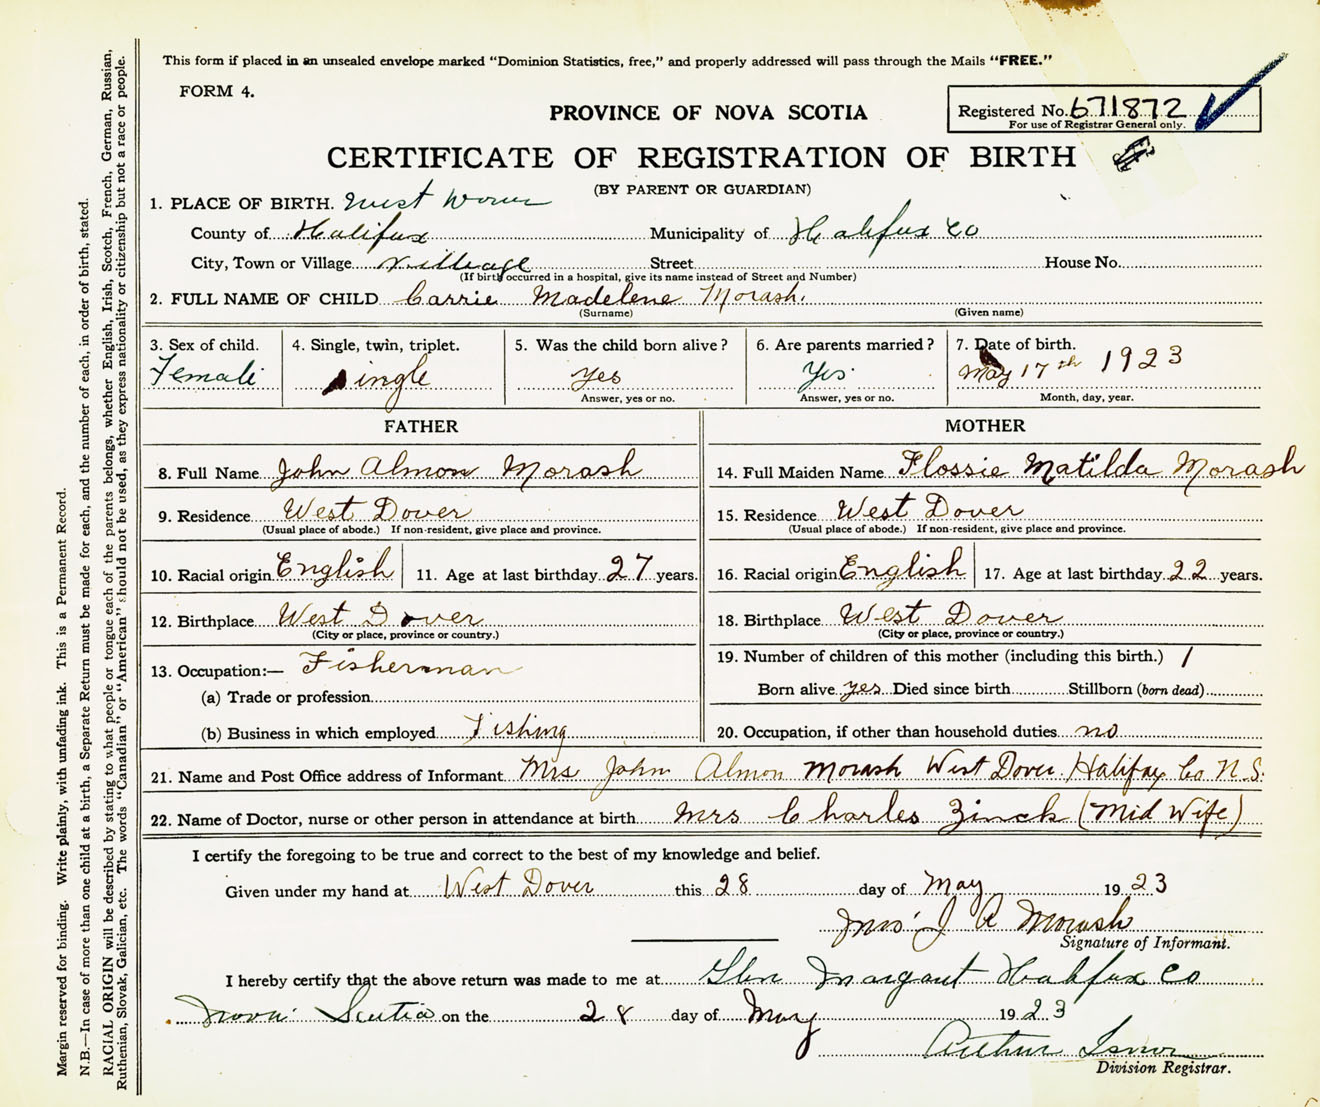 This form if placed in an unsealed envelope marked "Dominion Statistics, free," and properly addressed will pass through the Mails "FREE."
FORM 4.
PROVINCE OF NOVA SCOTIA
Registered No. 671872
For use of Registrar General only.
CERTIFICATE OF REGISTRATION OF BIRTH
(BY PARENT OR GUARDIAN)
1. PLACE OF BIRTH. West Dover
County of Halifax Municipality of Halifax Co
City, Town or Village village Street House No.
(If birth occurred in a hospital, give its name instead of Street and Number)
2. FULL NAME OF CHILD Carrie Madelene Morash.
(Surname) (Given name)
3. Sex of child. 4. Single, twin, triplet. 5. Was the child born alive? 6. Are parents married? 7. Date of birth.
Female Single yes Yes May 17th 1923
Answer, yes or no. Answer, yes or no. Month, day, year.
FATHER MOTHER
8. Full Name John Almon Morash 14. Full Maiden Name Flossie Matilda Morash
9. Residence West Dover 15. Residence West Dover
(Usual place of abode.) If non-resident, give place and province. (Usual place of abode.) If non-resident, give place and province.
10. Racial origin English 11. Age at last birthday 27 years. 16. Racial origin English 17. Age at last birthday 22 years.
12. Birthplace West Dover 18. Birthplace West Dover
(City or place, province or country.) (City or place, province or country.)
13. Occupation:— Fisherman 19. Number of children of this mother (including this birth.) 1
(a) Trade or profession Born alive yes Died since birth Stillborn (born dead)
(b) Business in which employed Fishing 20. Occupation, if other than household duties no
21. Name and Post Office address of Informant Mrs John Almon Morash West Dover. Halifax Co. N.S.
22. Name of Doctor, nurse or other person in attendance at birth Mrs Charles Zinck (Mid Wife)
I certify the foregoing to be true and correct to the best of my knowledge and belief.
Given under my hand at West Dover this 28 day of May 1923
Mrs J A Morash
Signature of Informant.
I hereby certify that the above return was made to me at Glen Margaret Halifax Co
Nova Scotia on the 28 day of May 1923
Arthur Isnor
Division Registrar.
Margin reserved for binding. Write plainly, with unfading ink. This is a Permanent Record.
N.B.—In case of more than one child at a birth, a Separate Return must be made for each, and the number of each, in order of birth, stated.
RACIAL ORIGIN will be described by stating to what people or tongue each of the parents belongs, whether English, Irish, Scotch, French, German, Russian,
Ruthenian, Slovak, Galician, etc. The words "Canadian" or "American" should not be used, as they express nationality or citizenship but not a race or people.